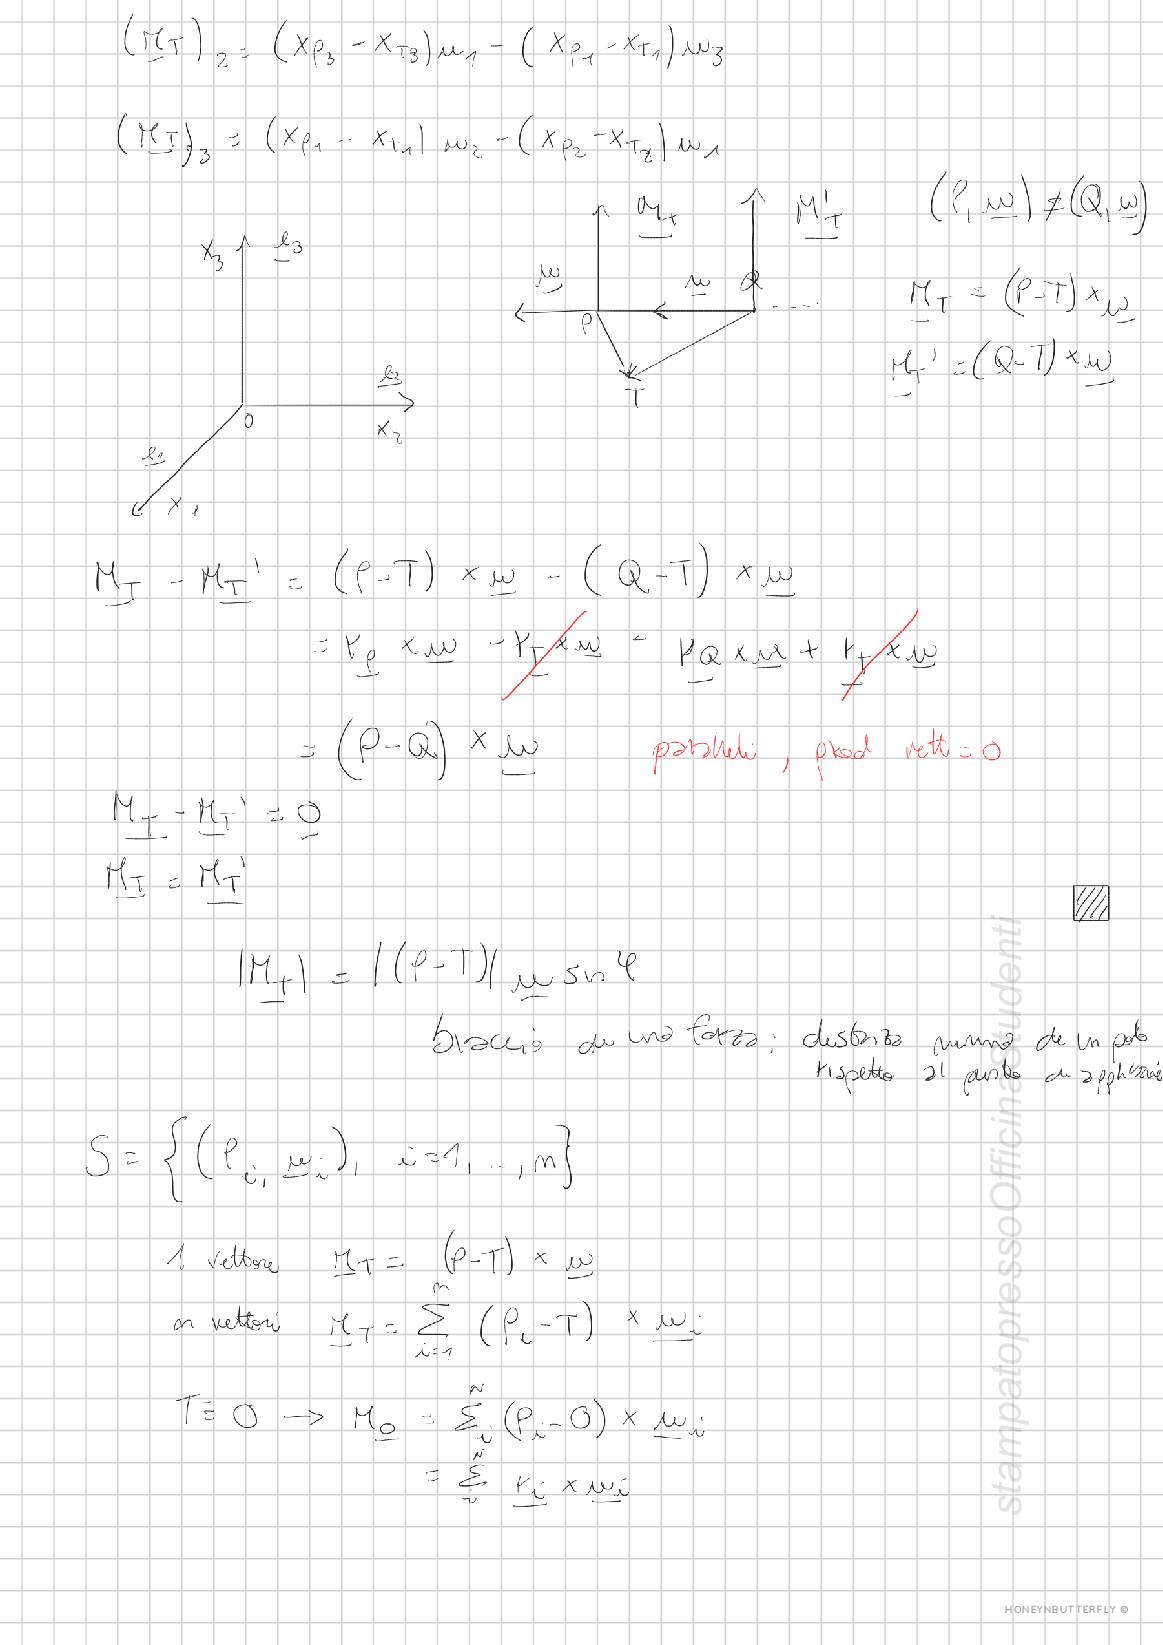 (M_T)_2 = (x_P3 - x_T3) w_1 - (x_P1 - x_T1) w_3
(M_T)_3 = (x_P1 - x_T1) w_2 - (x_P2 - x_T2) w_1
(P, w) ≠ (Q, w)
M_T M_T'
x_3 e_3
w w Q
P
M_T = (P-T) × w
M_T' = (Q-T) × w
T
e_2
O
x_2
e_1
x_1
M_T - M_T' = (P-T) × w - (Q-T) × w
= r_P × w - r_T × w - r_Q × w + r_T × w
= (P-Q) × w paralleli, prod vett = 0
M_T - M_T' = 0
M_T = M_T'
|M_T| = |(P-T)| w sin φ
braccio di una forza: distanza minima di un polo
rispetto al punto di applicazione
S = {(P_i, w_i), i=1,..,n}
1 vettore M_T = (P-T) × w
n vettori M_T = Σ_{i=1}^{n} (P_i - T) × w_i
T ≡ O → M_O = Σ_i^N (P_i - O) × w_i
= Σ_i^N r_i × w_i
stampatopressoOfficinaStudenti
HONEYNBUTTERFLY ©